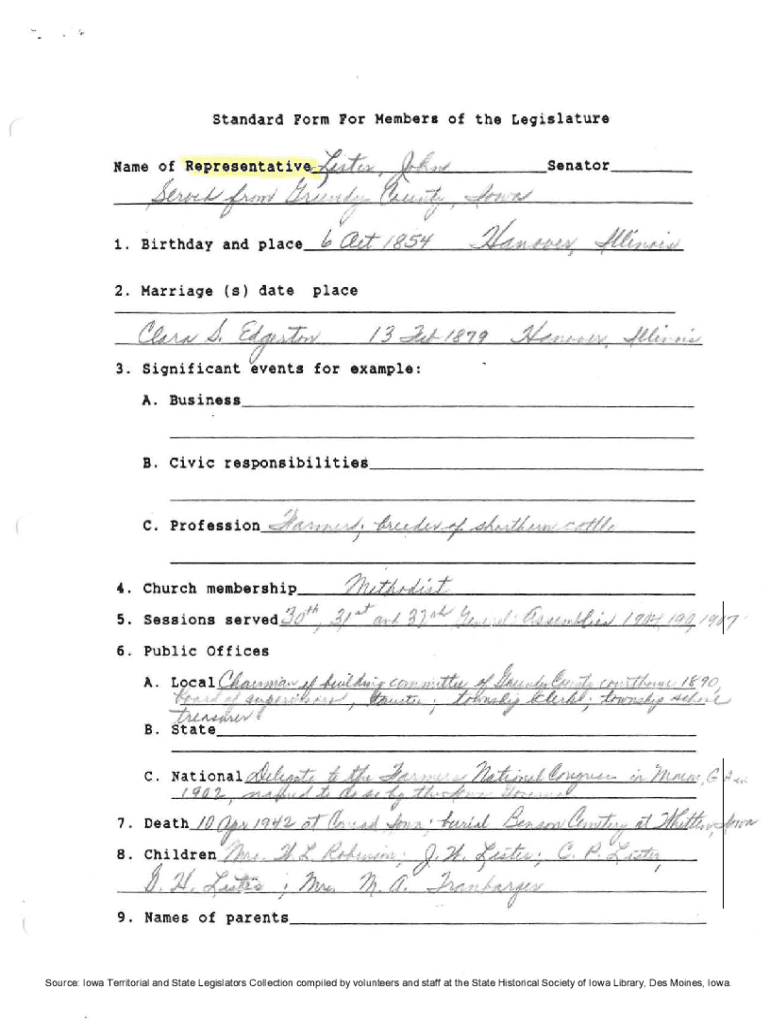 Standard Form For Members of the Legislature
Name of Representative Lester, John Senator
Served from Grundy County, Iowa
1. Birthday and place 6 Oct 1854 Hanover, Illinois
2. Marriage (s) date place
Clara S. Edgerton 13 Feb 1879 Hanover, Illinois
3. Significant events for example:
A. Business
B. Civic responsibilities
C. Profession Farmer; breeder of shorthorn cattle
4. Church membership Methodist
5. Sessions served 30th, 31st and 32nd General Assemblies 1904, 1907
6. Public Offices
A. Local Chairman of building committee of Grundy County courthouse 1890,
board of supervisors, trustee; township clerk; township school
treasurer
B. State
C. National Delegate to the Farmers National Congress in Macon, Ga in
1902, named to do so by the Governor
7. Death 10 Apr 1942 at Conrad Iowa; burial Benson Cemetery at Whitten, Iowa
8. Children Mrs. W. L. Robinson; J. W. Lester; C. P. Lester,
G. H. Lester; Mrs. M. A. Tranbarger
9. Names of parents
Source: Iowa Territorial and State Legislators Collection compiled by volunteers and staff at the State Historical Society of Iowa Library, Des Moines, Iowa.